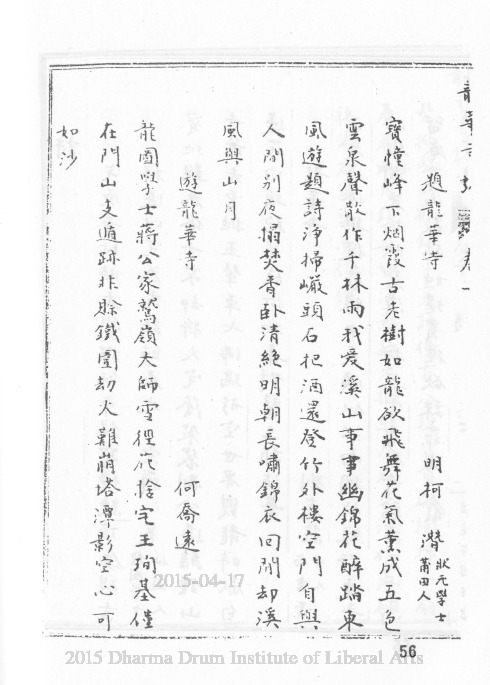 龍華寺志 卷一
題龍華寺 明柯潛 狀元學士 莆田人
寶幢峰下烟霞古老樹如龍欲飛舞花氣薰成五色
雲泉聲散作千林雨我愛溪山事事幽錦花醉踏東
風遊題詩淨掃巖頭石把酒還登竹外樓空門自與
人間別夜榻焚香臥清絕明朝長嘯錦衣回閒却溪
風與山月
遊龍華寺 何喬遠
龍圖學士蔣公家鷲嶺大師雪徑花捨宅王珣基僅
在門山支遁跡非賒鐵圍劫火難崩塔潭影空心可
如沙
56
2015-04-17
2015 Dharma Drum Institute of Liberal Arts